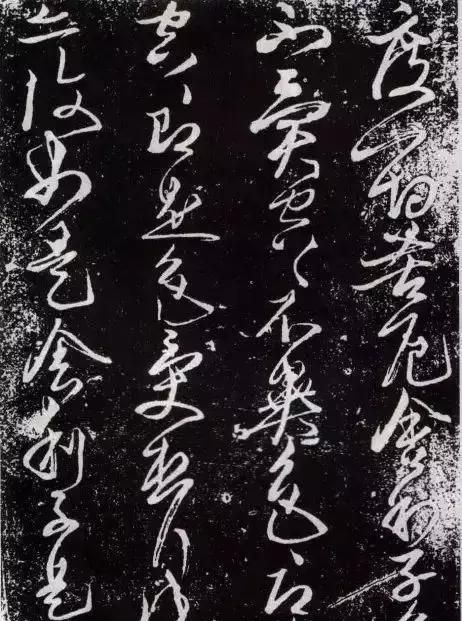 度一切苦厄舍利子色
不異空〻不異色〻即
空〻即是色受想行識
亦復如是舍利子是